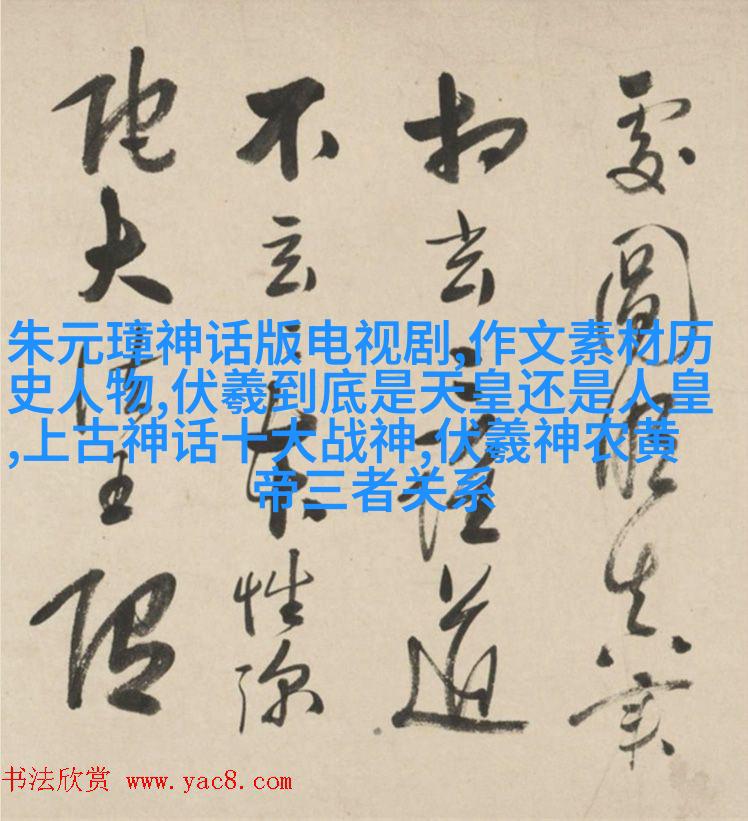 朱元璋神话版电视剧,作文素材历
史人物,伏羲到底是天皇还是人皇
,上古神话十大战神,伏羲神农黄
帝三者关系
圆
去二障道
不 性弥
陀大法王
书法欣赏 www.yac8.com